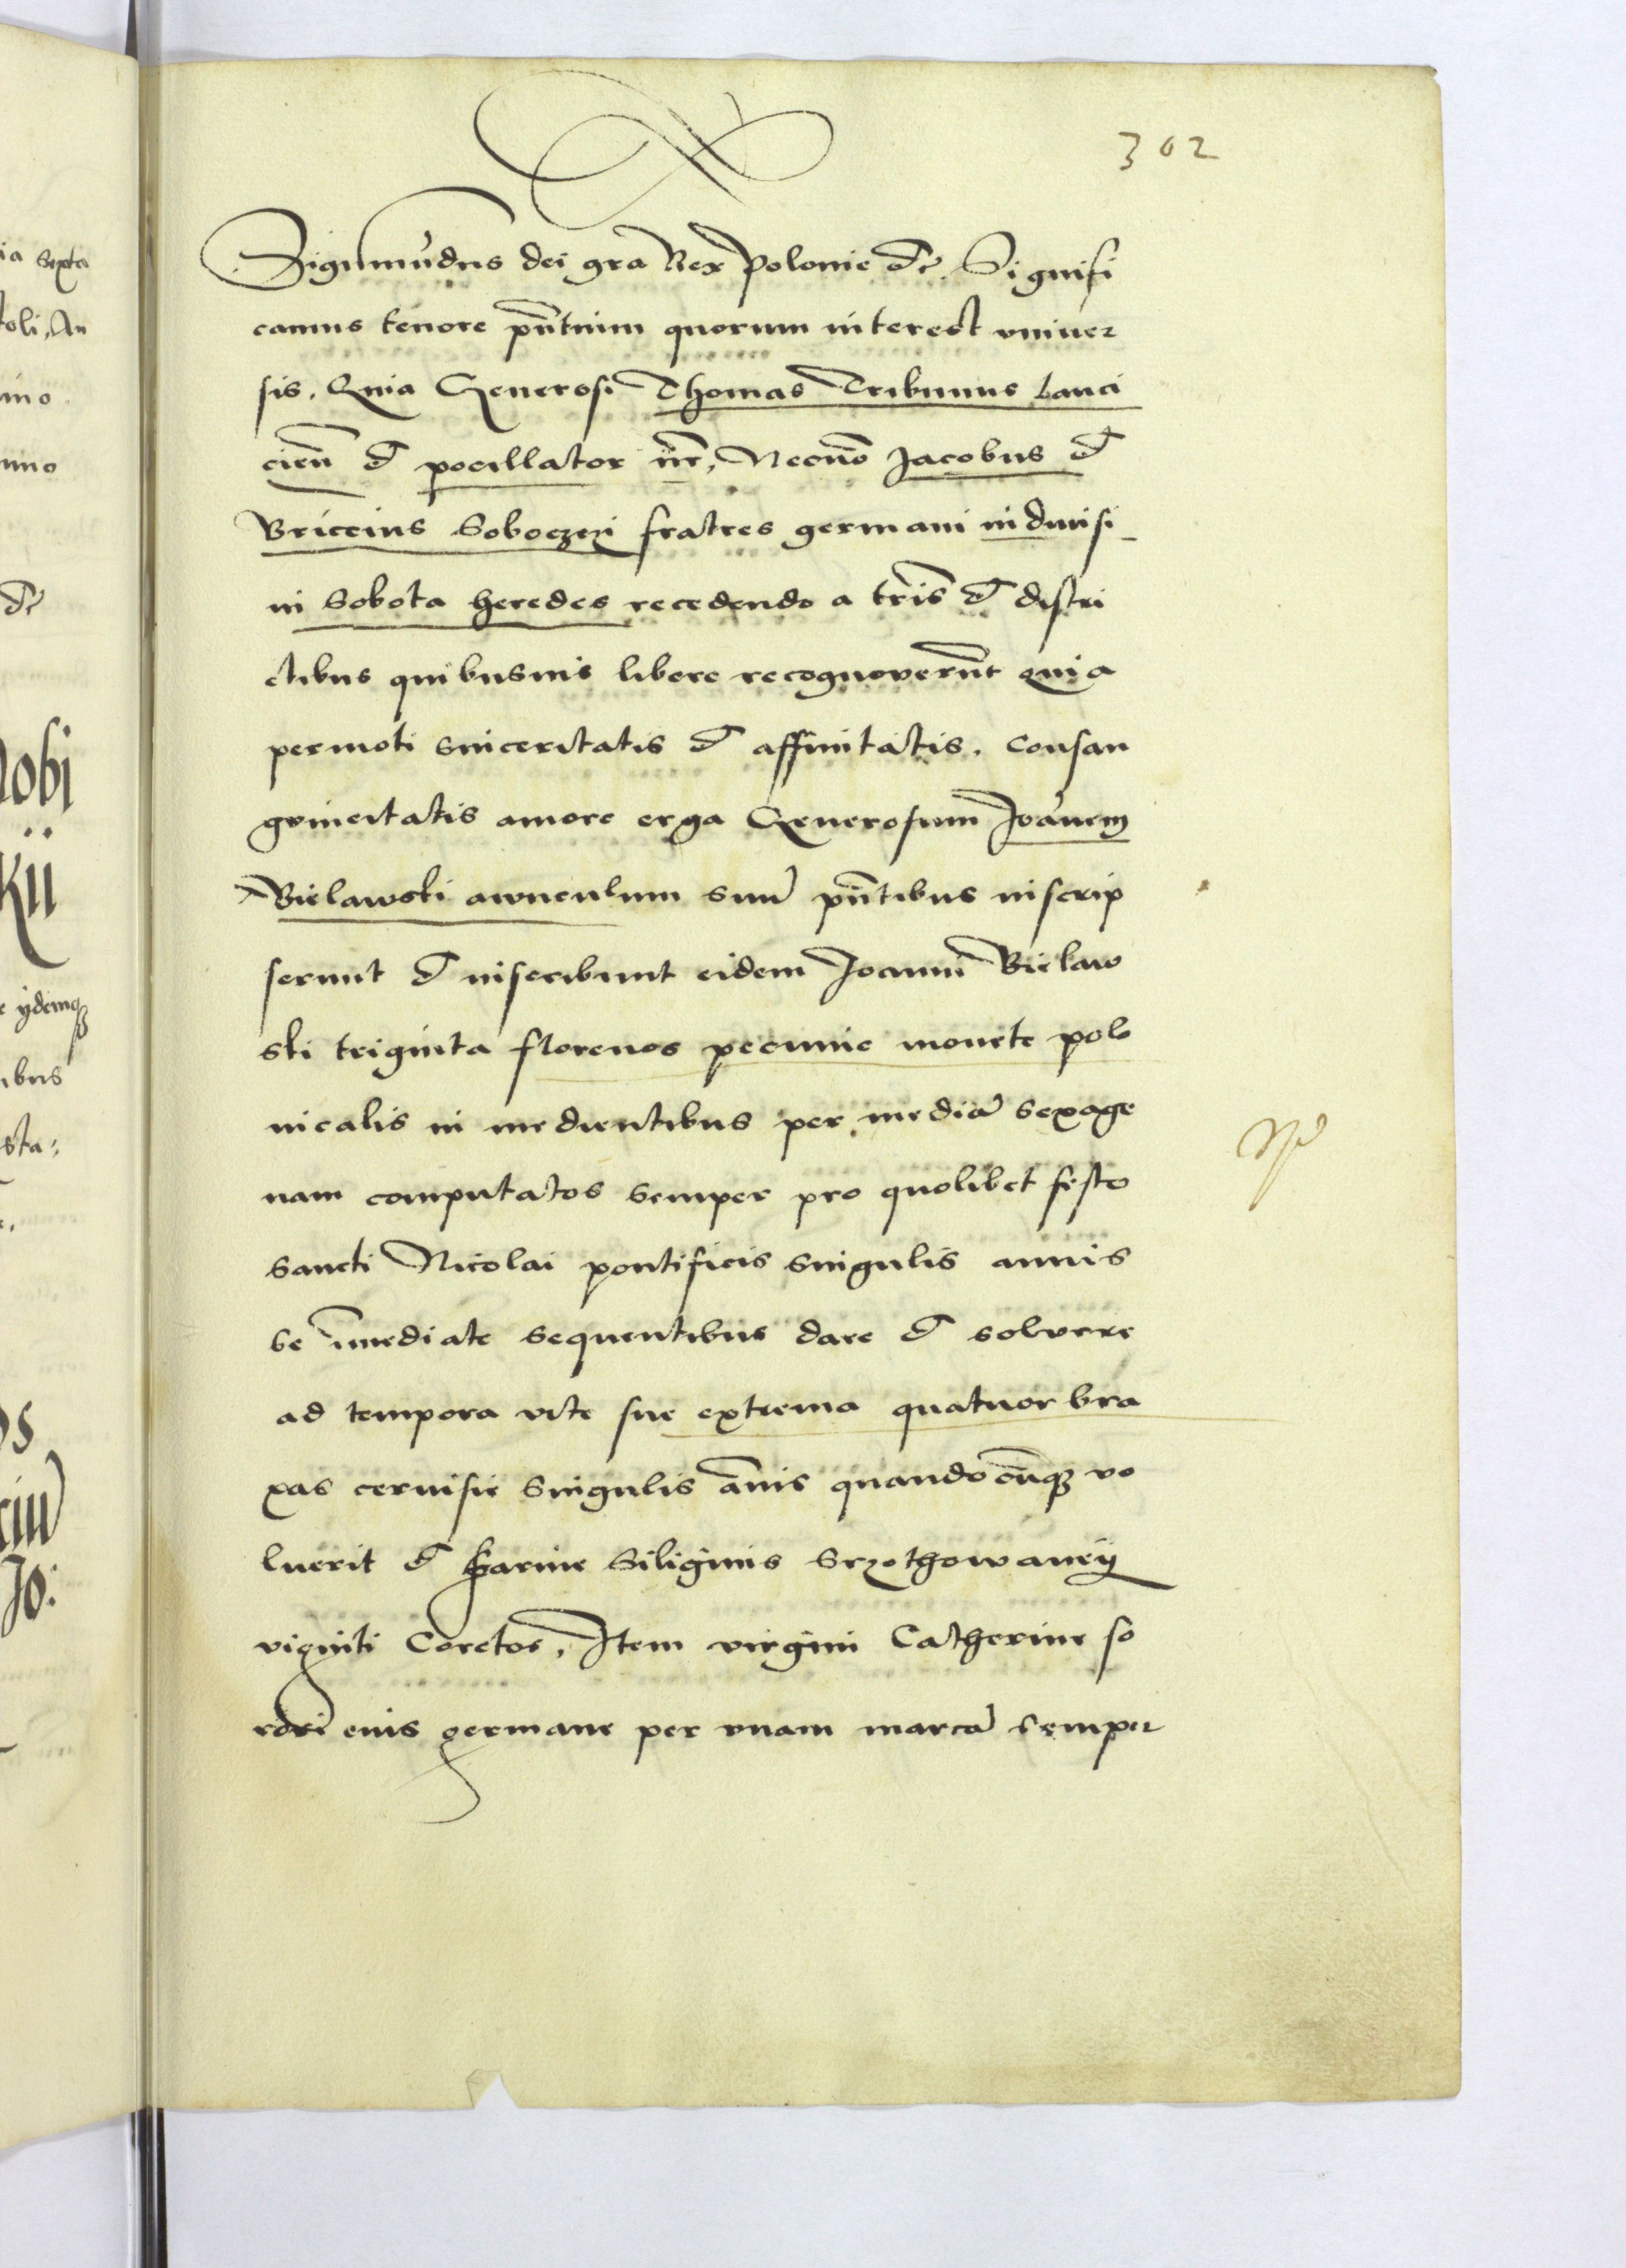 302
Sigismu̅dus dei gra Rex Polonie etc. Signifi
camus tenore pn̅tium quorum interest vniuer
sis. Quia Generosi Thomas Tribunus Lanci
cien̅ et pocillator nr̅, Necno̅ Jacobus et
Briccius Soboczszi fratres germani indiuisi
in Sobota heredes recedendo a tr̅is et distri
ctibus quibusuis libere recognoverun̅t quia
permoti sinceritatis et affinitatis. consan
gvineitatis amore erga Generosum Joa̅nem
Bielawski awnculum suu̅ pn̅tibus inscrip
serunt et inscribunt eidem Joanni Bielaw
ski triginta florenos pecunie monete polo
nicalis in medientibus per media̅ sexage
nam computatos semper pro quolibet festo
sancti Nicolai pontificis singulis annis
se i̅mediate sequentibus dare et solvere
ad tempora vite sue extrema quatuor bra
xas ceruisie singulis a̅nis quandocu̅qȝ vo
luerit et farine siliginis srzothowaney
viginti Coretos, Item virgini Catherine so
rori eius germane per vnam marca̅ semper
ia sexta
toli, An
nobi
kii
e ijdemqȝ
ibus
sta:
Jo: